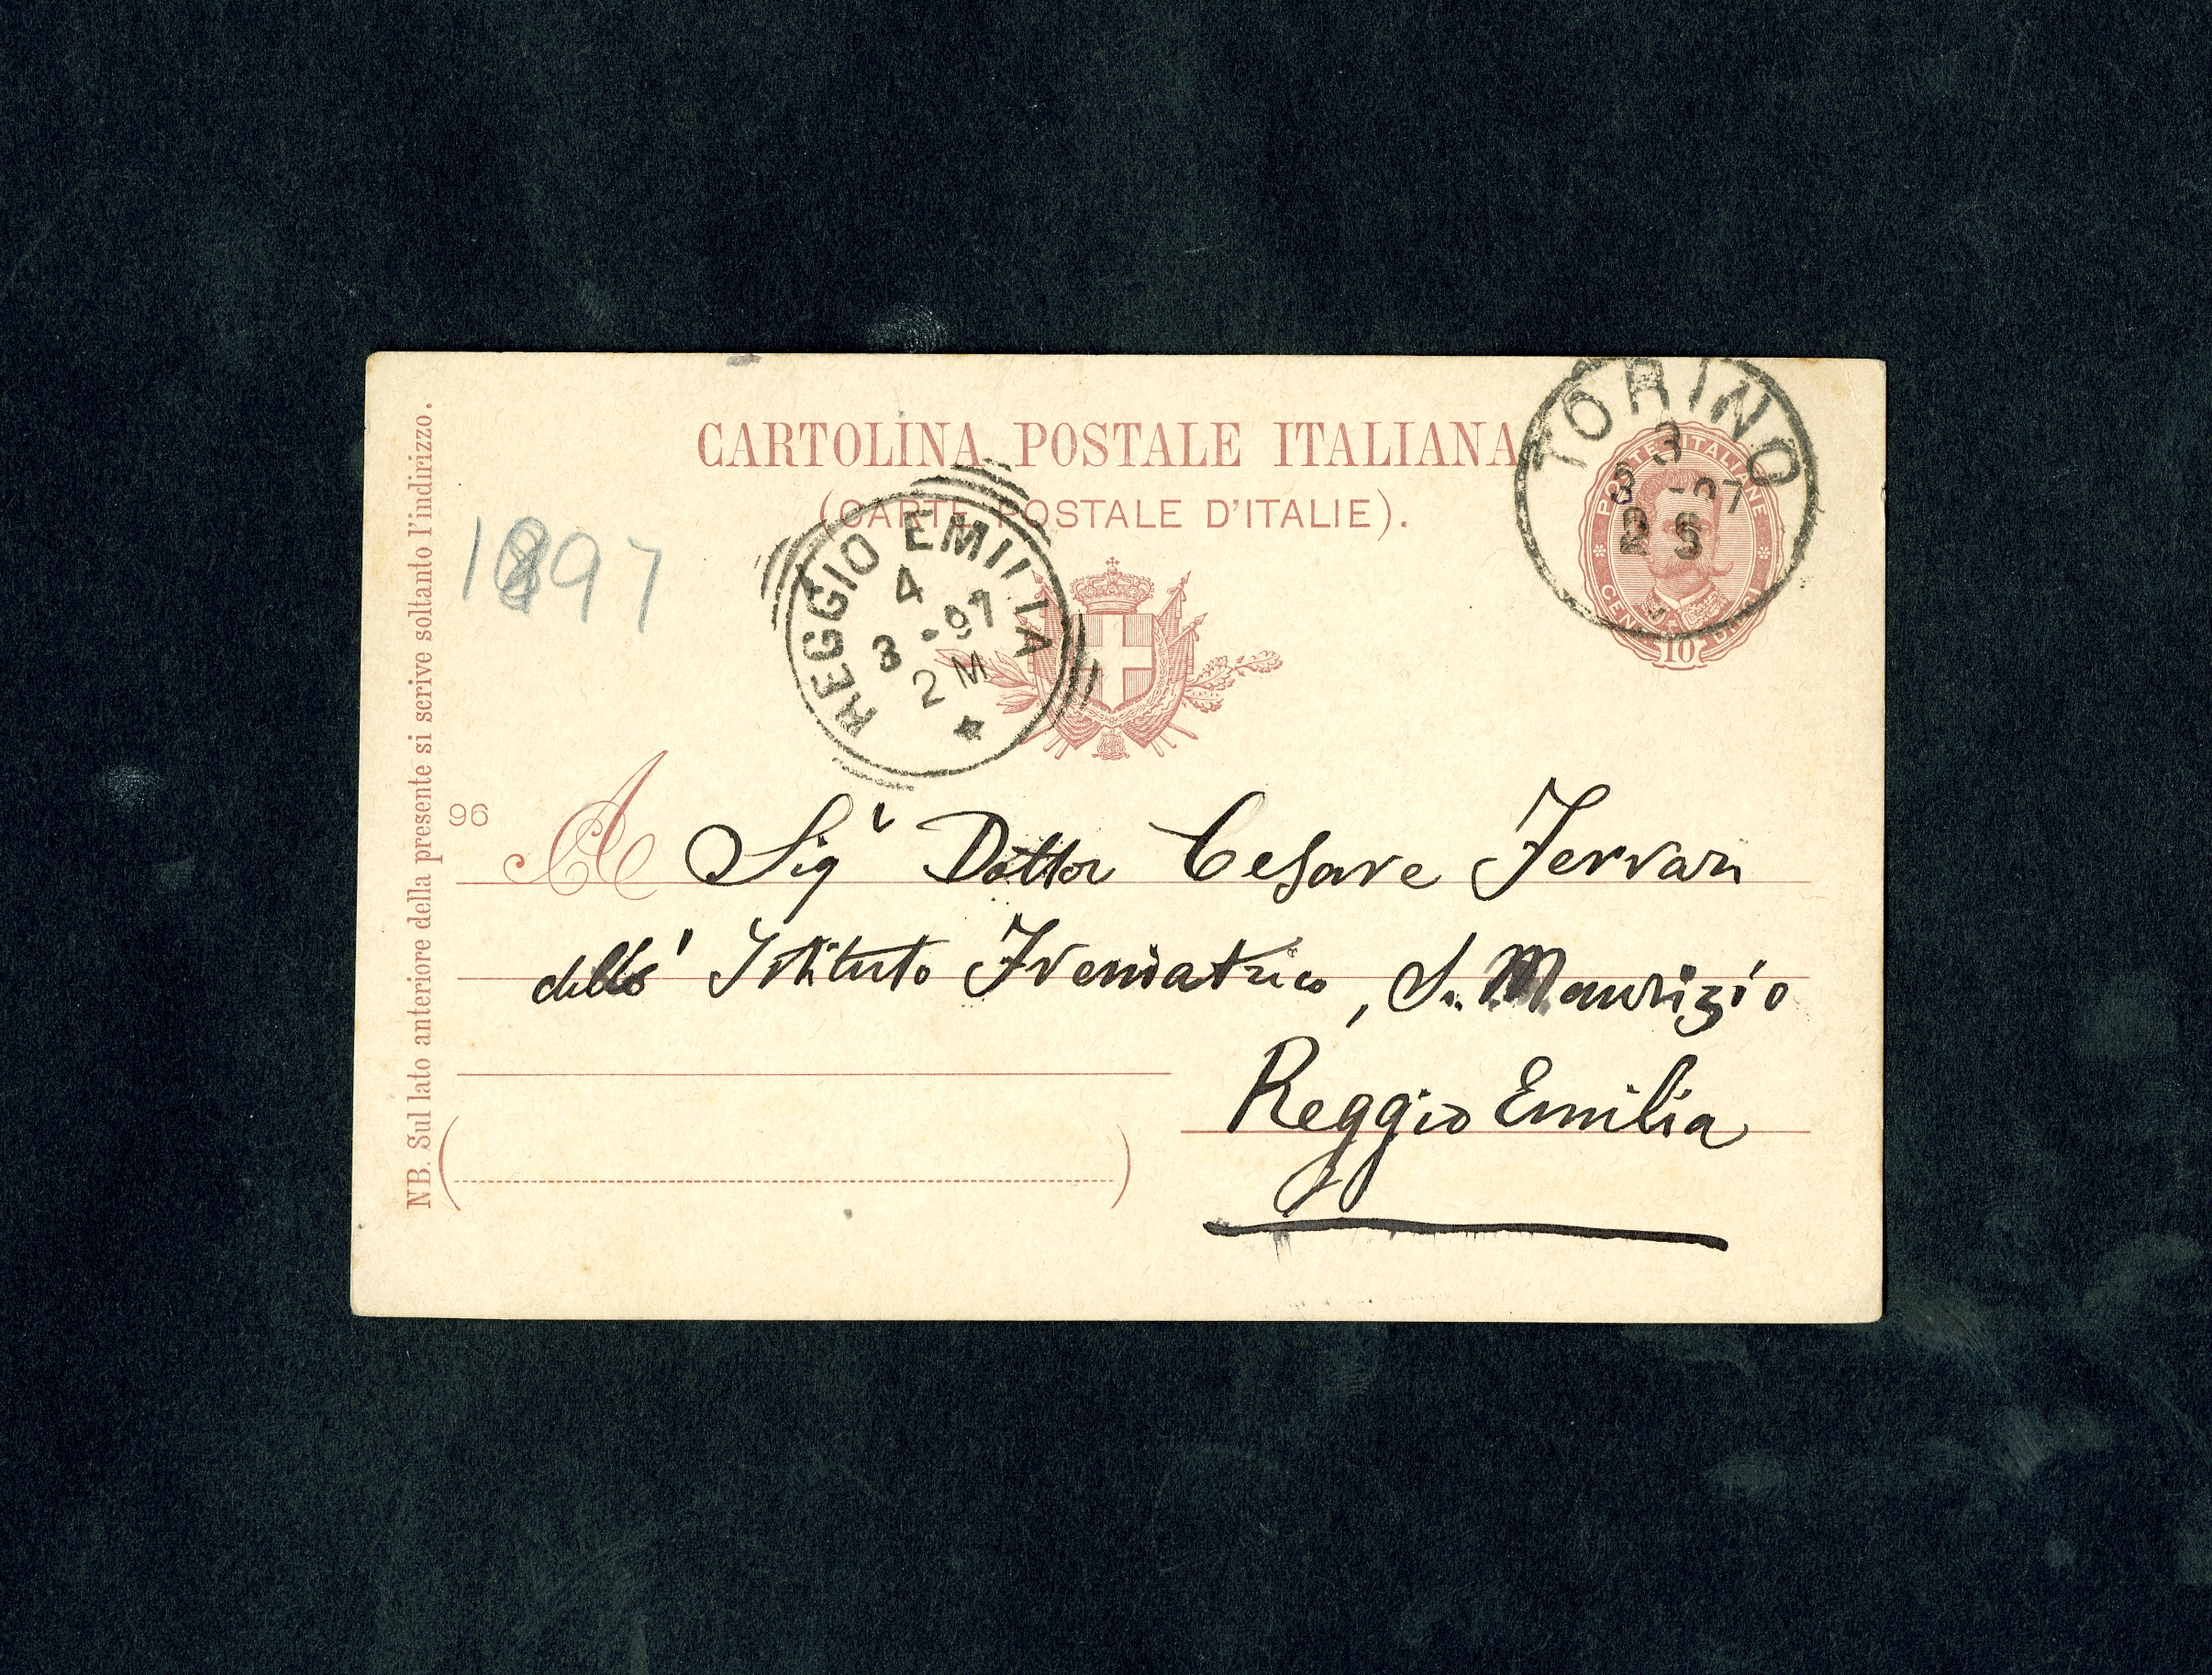 CARTOLINA POSTALE ITALIANA
(CARTE POSTALE D'ITALIE).
TORINO
3
3 -97
2 S
POSTE ITALIANE
CENT. 10
REGGIO EMILIA
4
3 -97
2 M
1897
NB. Sul lato anteriore della presente si scrive soltanto l'indirizzo.
96
A Sigr Dottor Cesare Ferrari
dell' Istituto Freniatrico, S. Maurizio
Reggio Emilia